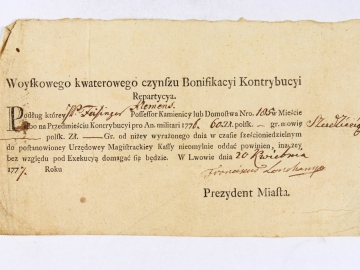 Woyſkowego kwaterowego czynſzu Bonifikacyi Kontrybucyi
Repartycya.
Klemens
Podług którey JP. Possessor Kamienicy lub Domoſtwa Nro. 105 w Mieście
lbo na Przedmieściu Kontrybucyi pro An. militari 177 60 Zł. polſk. gr. mowię
polſk. Zł. Gr. od niżey wyrażonego dnia w czasie sześcioniedzielnym
do poſtanowioney Urzędowey Magiſtrackiey Kaſſy nieomylnie oddać powinien, inaczey
bez względu pod Exekucyą domagać ſię będzie. W Lwowie dnia 20 Kwietnia
1777. Roku
Franciscus
Prezydent Miaſta.